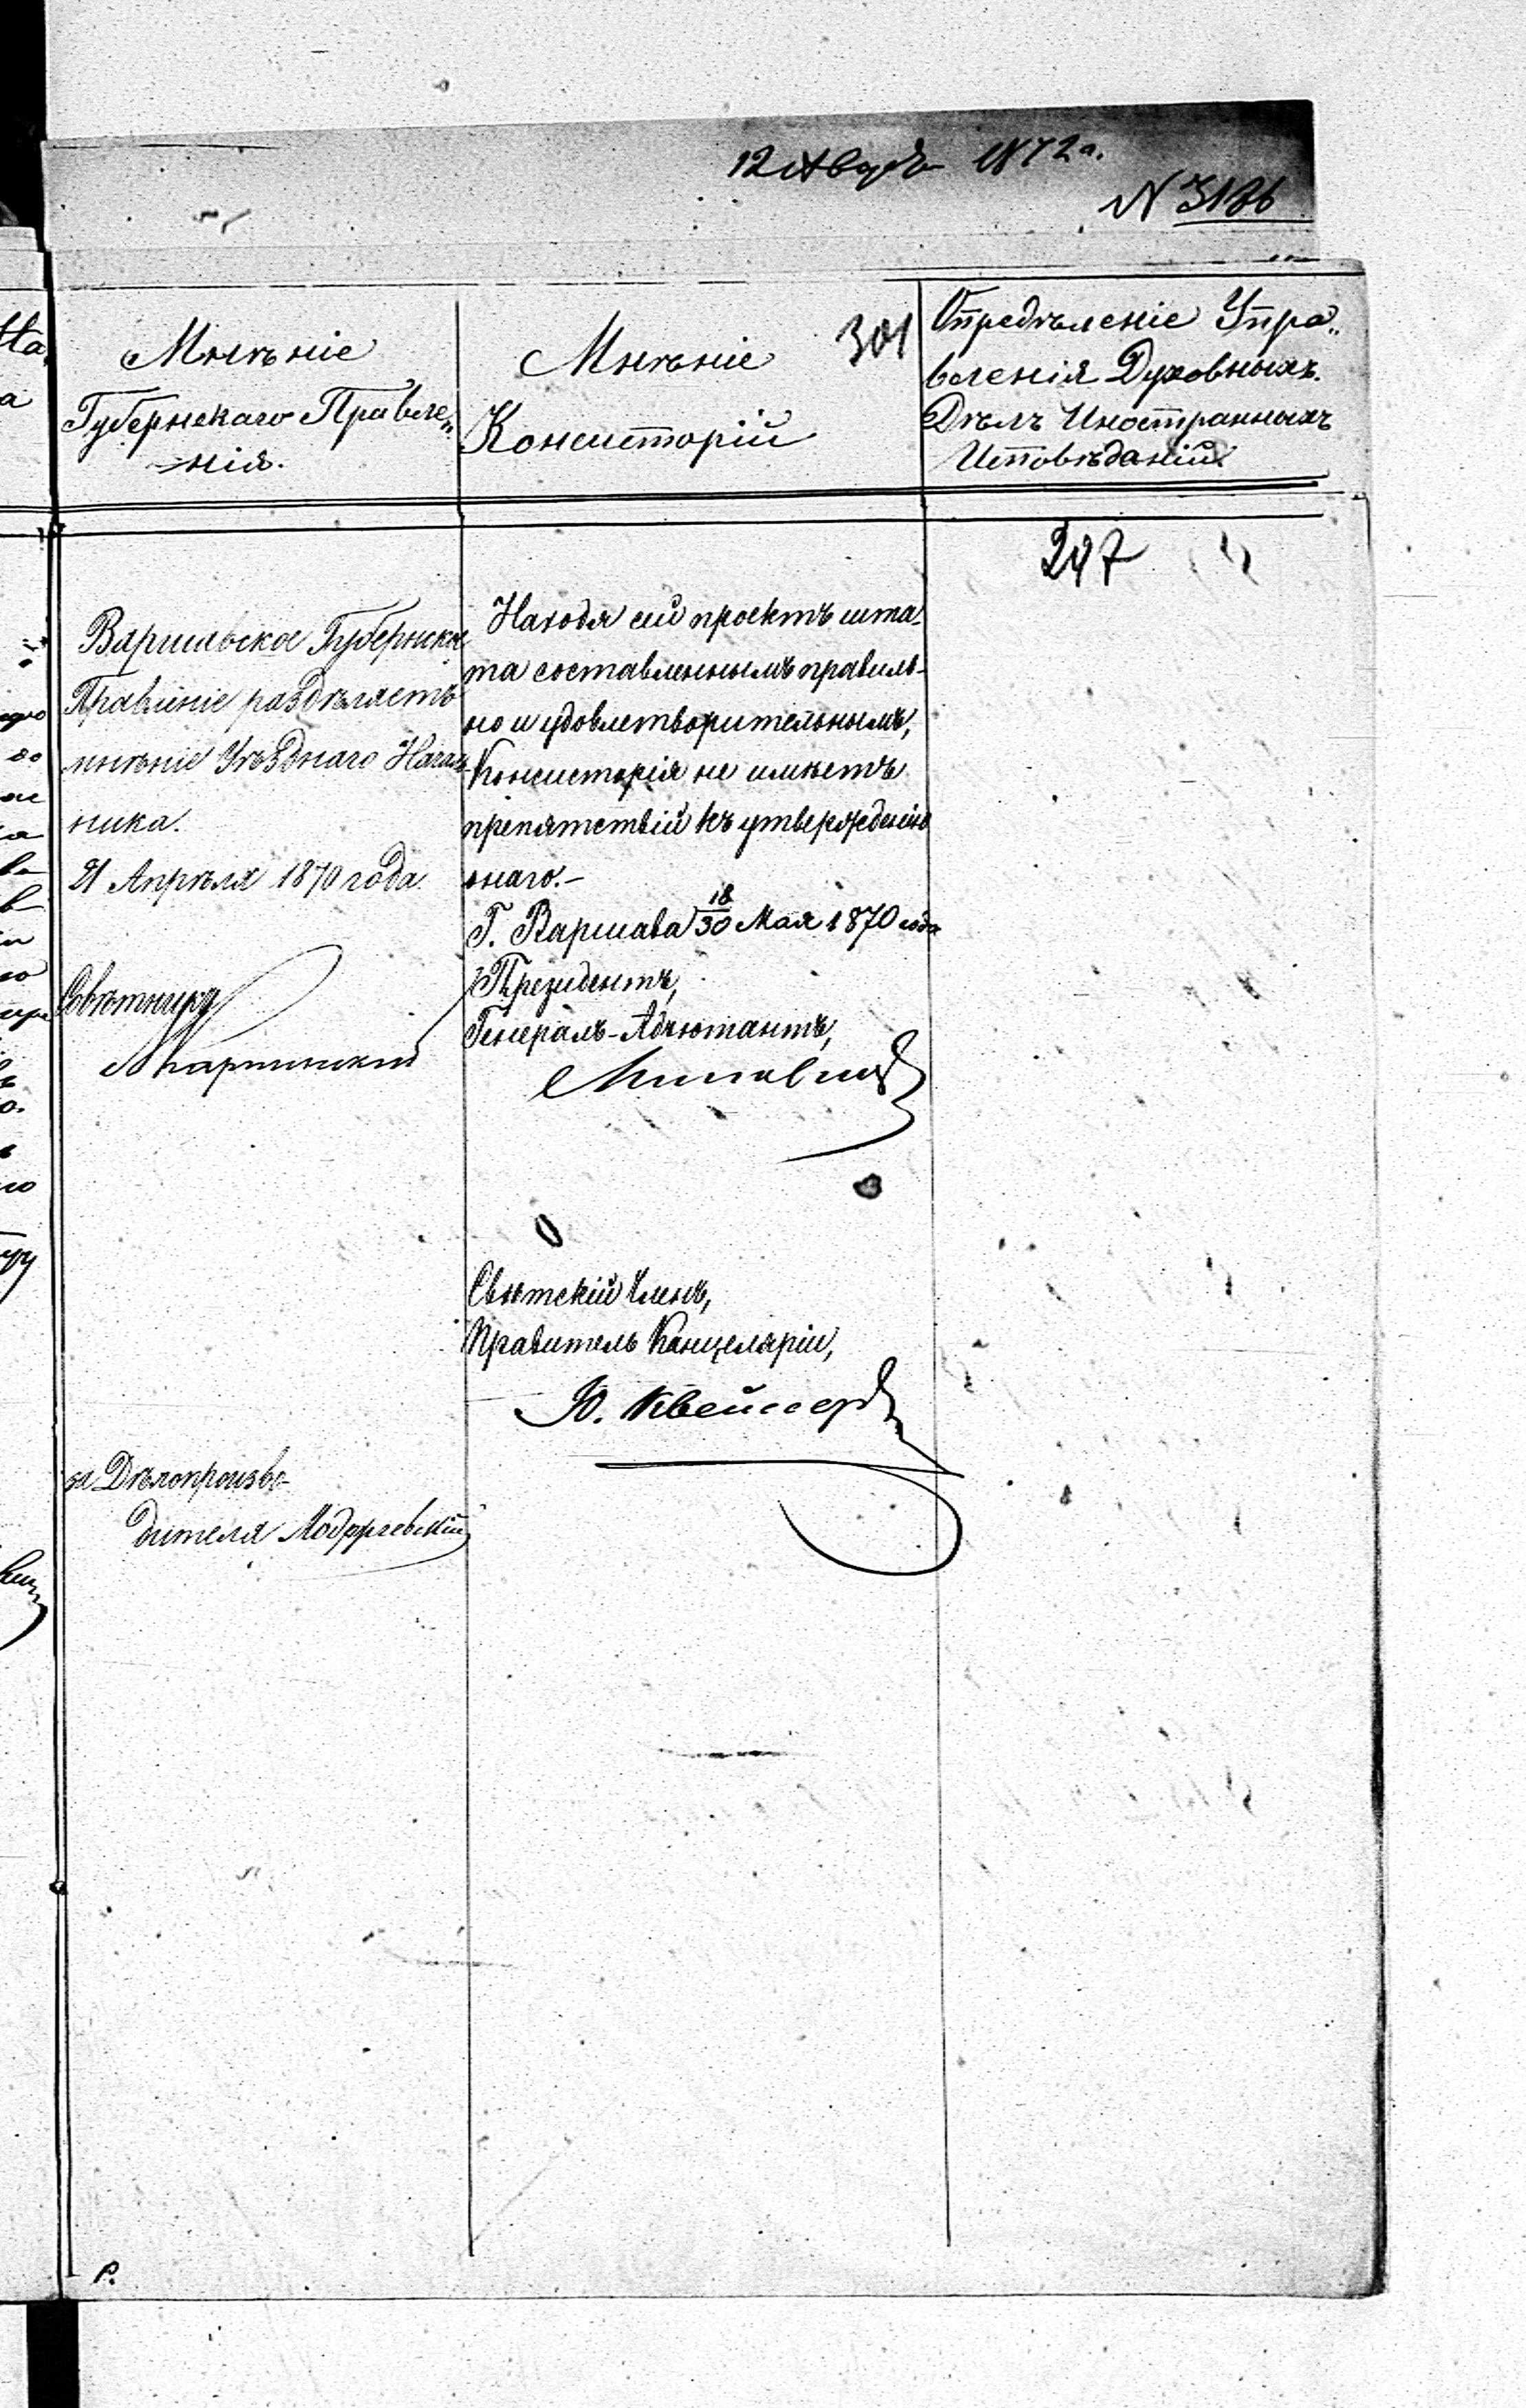 1872 г.
N 3186
Мнѣніе
Губернскаго Правле„
нія.
Мнѣніе
Консисторій
301
Опредѣленіе Упра„
вленія Духовныхъ
Дѣлъ Иностранныхъ
Исповѣданій
297
Варшавское Губернское
Правленіе раздѣляетъ
мнѣніе Уѣзднаго Началь
ника.
21 Апрѣля 1870 года.
Совѣтникъ
за Дѣлопроизво-
дителя Модржевскій
Находя сей проектъ шта-
та составленнымъ правиль-
но и удовлетворительнымъ,
Консисторія не имѣетъ
препятствій къ утвержденію
онаго.-
Г. Варшава 18/30 Мая 1870 года
Президентъ,
Генералъ-Адъютантъ,
Свѣтскій Членъ,
Правитель Канцеляріи,
Ю.
Р.